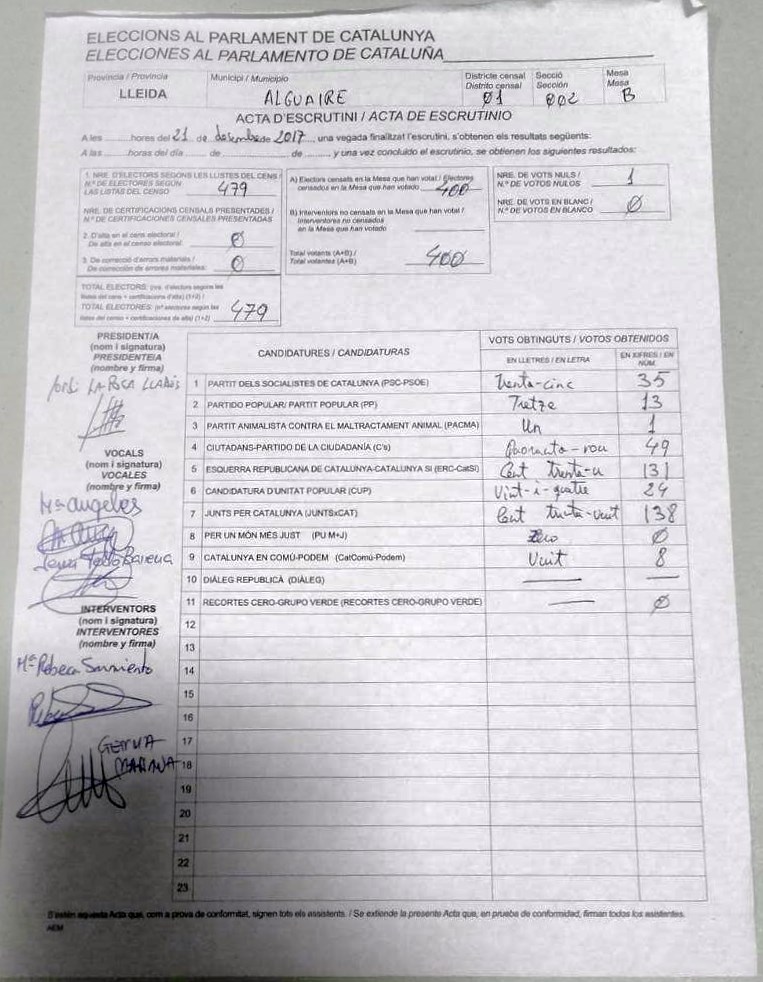 ELECCIONS AL PARLAMENT DE CATALUNYA
ELECCIONES AL PARLAMENTO DE CATALUÑA
Província / Provincia
LLEIDA
Municipi / Municipio
ALGUAIRE
Districte censal
Distrito censal
01
Secció
Sección
002
Mesa
Mesa
B
ACTA D'ESCRUTINI / ACTA DE ESCRUTINIO
A les ........ hores del 21 de desembre de 2017, una vegada finalitzat l'escrutini, s'obtenen els resultats següents:
A las ........ horas del día ........ de ........ de ........ y una vez concluido el escrutinio, se obtienen los siguientes resultados:
1. NRE. D'ELECTORS SEGONS LES LLISTES DEL CENS /
N.º DE ELECTORES SEGÚN
LAS LISTAS DEL CENSO 479
NRE. DE CERTIFICACIONS CENSALS PRESENTADES /
N.º DE CERTIFICACIONES CENSALES PRESENTADAS
2. D'alta en el cens electoral /
De alta en el censo electoral 0
3. De correcció d'errors materials /
De corrección de errores materiales 0
TOTAL ELECTORS: (nre. d'electors segons les
llistes del cens + certificacions d'alta) (1+2) /
TOTAL ELECTORES: (nº electores según las
listas del censo + certificaciones de alta) (1+2) 479
A) Electors censats en la Mesa que han votat / Electores
censados en la Mesa que han votado 400
B) Interventors no censats en la Mesa que han votat /
Interventores no censados
en la Mesa que han votado
Total votants (A+B) /
Total votantes (A+B) 400
NRE. DE VOTS NULS /
N.º DE VOTOS NULOS 1
NRE. DE VOTS EN BLANC /
N.º DE VOTOS EN BLANCO 0
PRESIDENT/A
(nom i signatura)
PRESIDENTE/A
(nombre y firma)
VOCALS
(nom i signatura)
VOCALES
(nombre y firma)
Mª Angeles
INTERVENTORS
(nom i signatura)
INTERVENTORES
(nombre y firma)
Mª Rebeca Sarmiento
GEMMA
CANDIDATURES / CANDIDATURAS
VOTS OBTINGUTS / VOTOS OBTENIDOS
EN LLETRES / EN LETRA
EN XIFRES / EN NÚM.
1 PARTIT DELS SOCIALISTES DE CATALUNYA (PSC-PSOE) Trenta-cinc 35
2 PARTIDO POPULAR/ PARTIT POPULAR (PP) Tretze 13
3 PARTIT ANIMALISTA CONTRA EL MALTRACTAMENT ANIMAL (PACMA) Un 1
4 CIUTADANS-PARTIDO DE LA CIUDADANÍA (C's) Quaranta-nou 49
5 ESQUERRA REPUBLICANA DE CATALUNYA-CATALUNYA SÍ (ERC-CatSí) Cent trenta-u 131
6 CANDIDATURA D'UNITAT POPULAR (CUP) Vint-i-quatre 24
7 JUNTS PER CATALUNYA (JUNTSxCAT) Cent trenta-vuit 138
8 PER UN MÓN MÉS JUST (PU M+J) Zero 0
9 CATALUNYA EN COMÚ-PODEM (CatComú-Podem) Vuit 8
10 DIÀLEG REPUBLICÀ (DIÀLEG) — —
11 RECORTES CERO-GRUPO VERDE (RECORTES CERO-GRUPO VERDE) — 0
12
13
14
15
16
17
18
19
20
21
22
23
S'estén aquesta Acta que, com a prova de conformitat, signen tots els assistents. / Se extiende la presente Acta que, en prueba de conformidad, firman todos los asistentes.